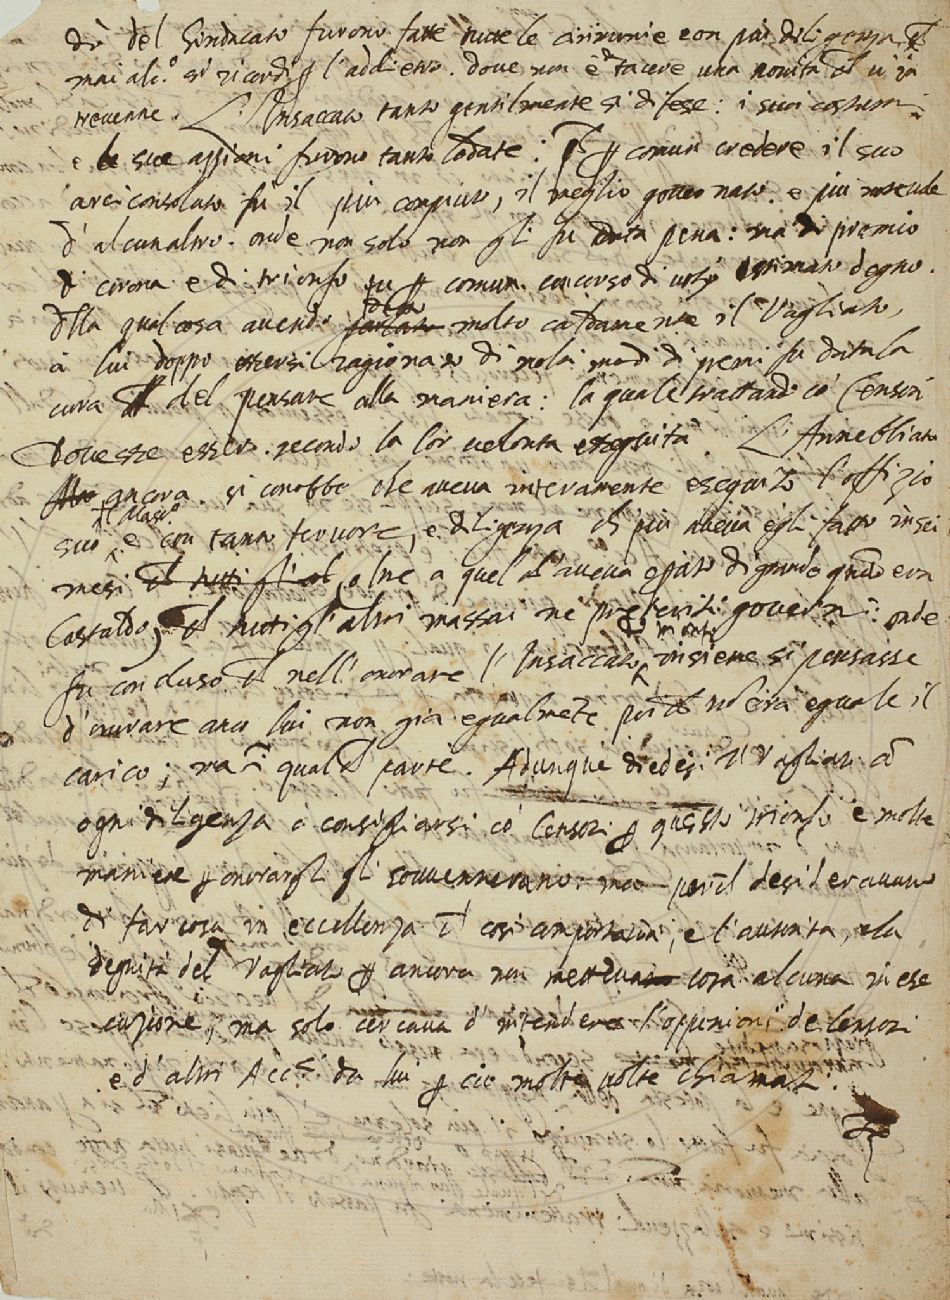 dì del Sindacato furono fatte tutte le cirimonie con più diligenza ch
mai alc.º si ricordi p l'addietro. dove non è da tacere una novità ch vi in
trevenne. L'Insaccato tanto gentilmente si difese: i suoi costumi
e le sue azzioni furono tanto lodate: ch p comun credere il suo
arciconsolato fu il più compiuto, il meglio governato. e più
d'alcun altro. onde non solo non gli fu data pena: ma di premio
di corona e di trionfo fu p comun concorso di voti stimato degno.
Della qual cosa avendo parlato molto caldamente il Vagliato,
à lui doppo essersi ragionato di molti modi di premi fu data la
cura del pensare alla maniera: la quale trattando cō Censori
dovesse essere secondo la lor volontà eseguita. L'Annebbiato
ancora. si conobbe che aveva interamente eseguito l'offizio
suo e con tanto fervore, e diligenza ch più aveva egli fatto in sei
mesi ch tutti gli al, oltre a quel ch'aveva operato di grande quādo era
Castaldo, ch tutti gl'altri massai ne preteriti governi: onde
fu concluso ch nell'onorare l'Insaccato insieme si pensasse
d'onorare anco lui non già egualmēte poi ch nō era eguale il
carico; ma ī qualch parte. Adunque diedesi il Vagliato cō
ogni diligenza à consigliarsi cō Censori p questo trionfo e molte
maniere p onorargli gli sovvennerano. ma perch desideravano
di far cosa in eccellenza ch così importava, e l'autorità, e la
degnità del Vagliato p ancora non mettevano cosa alcuna in ese
cuzione, ma solo cercava d'intendere l'oppinioni de Censori
e d'altri Acc.i da lui p ciò molte volte chiamati.